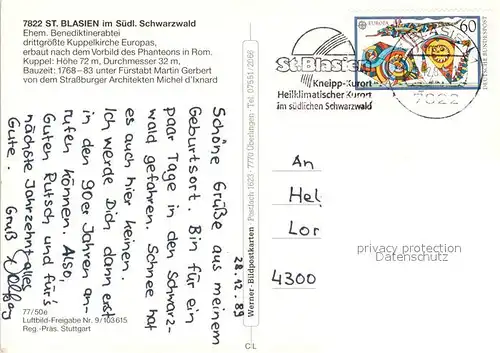 7822 ST. BLASIEN im Südl. Schwarzwald
Ehem. Benediktinerabtei
drittgrößte Kuppelkirche Europas,
erbaut nach dem Vorbild des Phanteons in Rom.
Kuppel: Höhe 72 m, Durchmesser 32 m,
Bauzeit: 1768–83 unter Fürstabt Martin Gerbert
von dem Straßburger Architekten Michel d'Ixnard
28.12.89
Schöne Grüße aus meinem
Geburtsort. Bin für ein
paar Tage in den Schwarz-
wald gefahren. Schnee hat
es auch hier keinen.
Ich werde Dich dann erst
in den 90er Jahren an-
rufen können. Also,
Guten Rutsch und für's
nächste Jahrzehnt alles
Gute.
Gruß Wolfgang
77/50e
Luftbild-Freigabe Nr. 9/103615
Reg.-Präs. Stuttgart
Werner-Bildpostkarten · Postfach 1623 · 7770 Überlingen · Tel. 07551/2066
CL
St. Blasien
Kneipp-Kurort
Heilklimatischer Kurort
im südlichen Schwarzwald
7822
EUROPA
60
DEUTSCHE BUNDESPOST
An
Hel
Lor
4300
privacy protection
Datenschutz